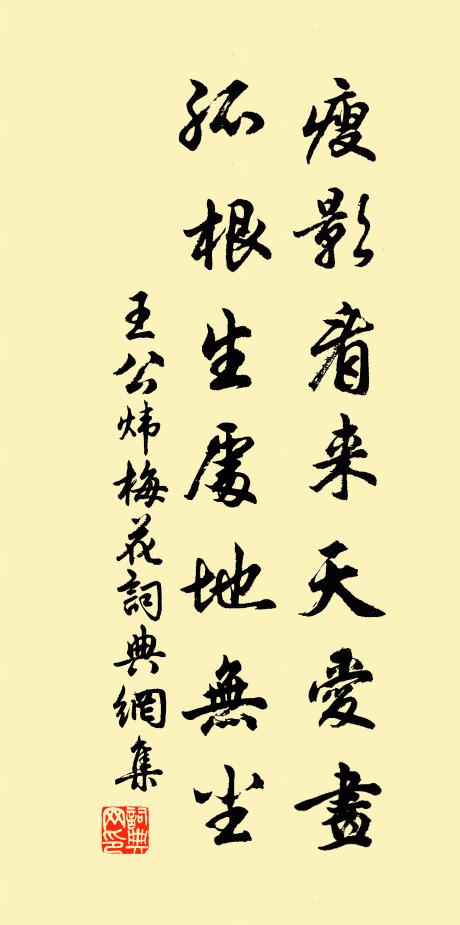 瘦影看来天愛畫
孤根生處地無尘
王公炜梅花詞典網集
詞典网印